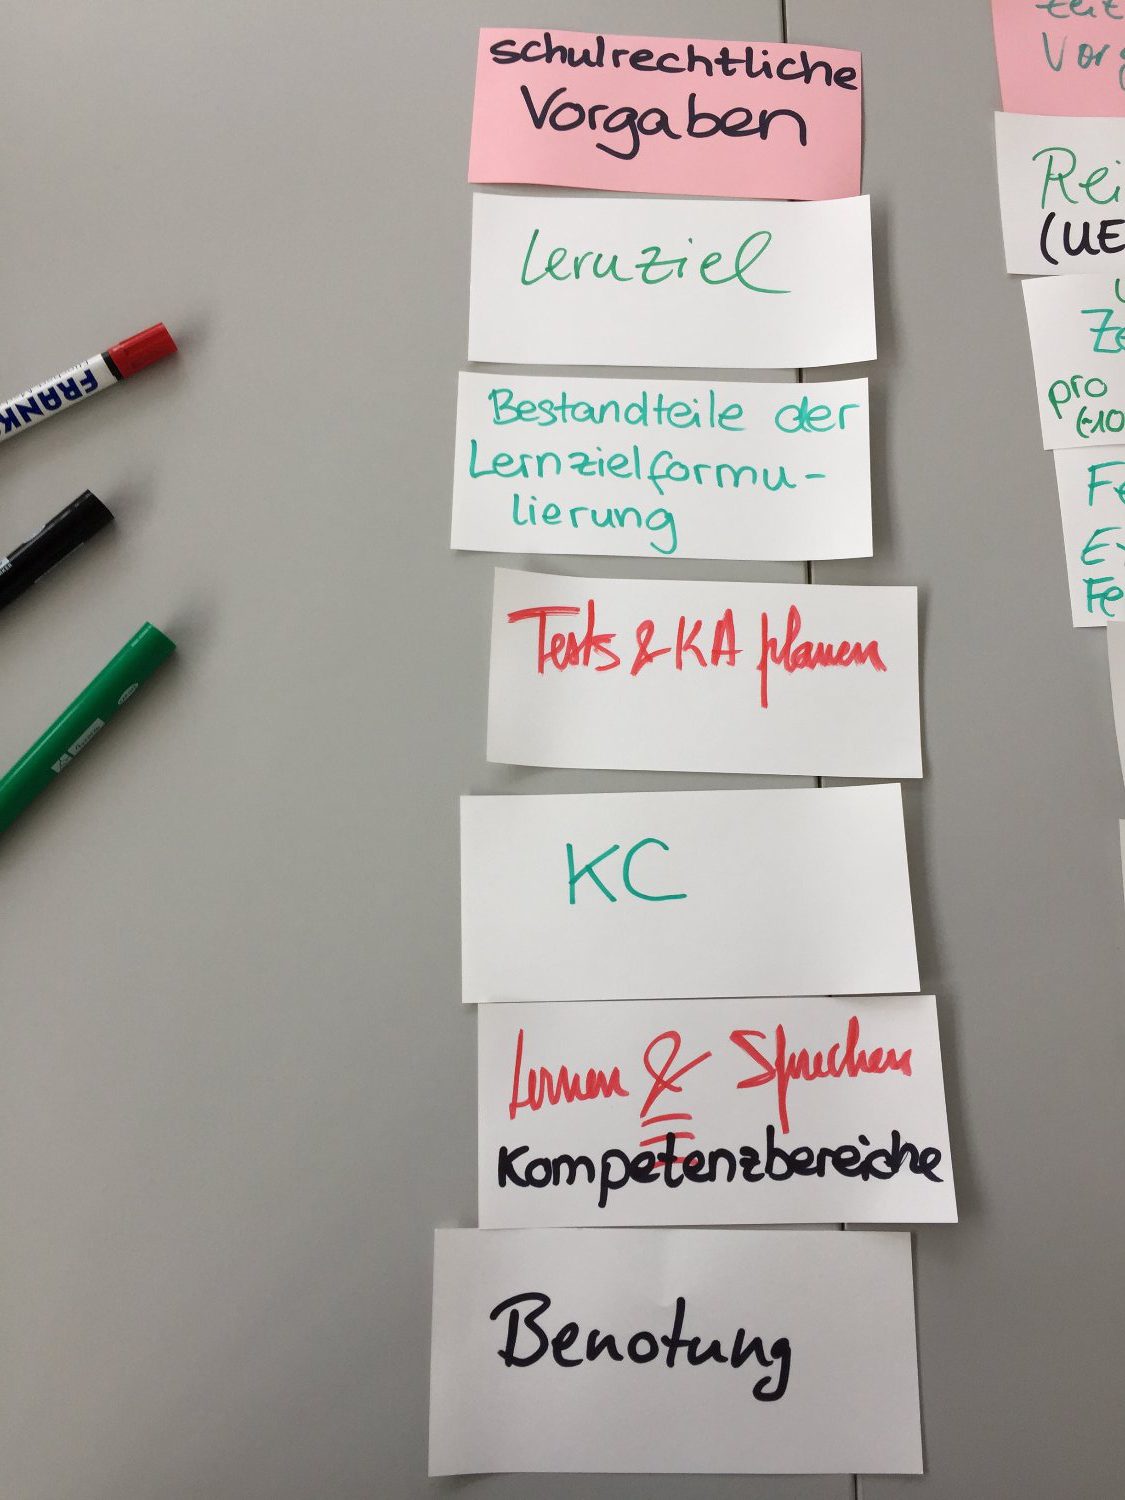 schulrechtliche
Vorgaben
Lernziel
Bestandteile der
Lernzielformu-
lierung
Tests & KA planen
KC
Lernen & Sprechen
Kompetenzbereiche
Benotung
Rei
(UE
Ze
pro
(~10
Fe
Fe
FRANK